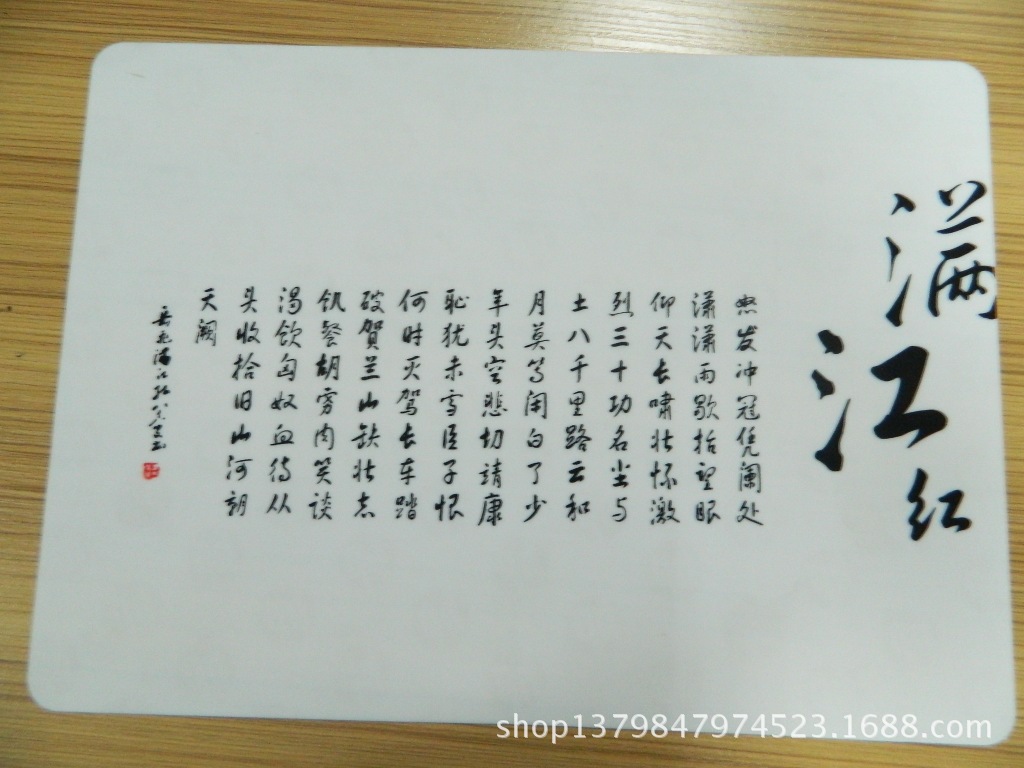 满江红
怒发冲冠凭阑处
潇潇雨歇抬望眼
仰天长啸壮怀激
烈三十功名尘与
土八千里路云和
月莫等闲白了少
年头空悲切靖康
耻犹未雪臣子恨
何时灭驾长车踏
破贺兰山缺壮志
饥餐胡虏肉笑谈
渴饮匈奴血待从
头收拾旧山河朝
天阙
岳飞满江红
shop1379847974523.1688.com